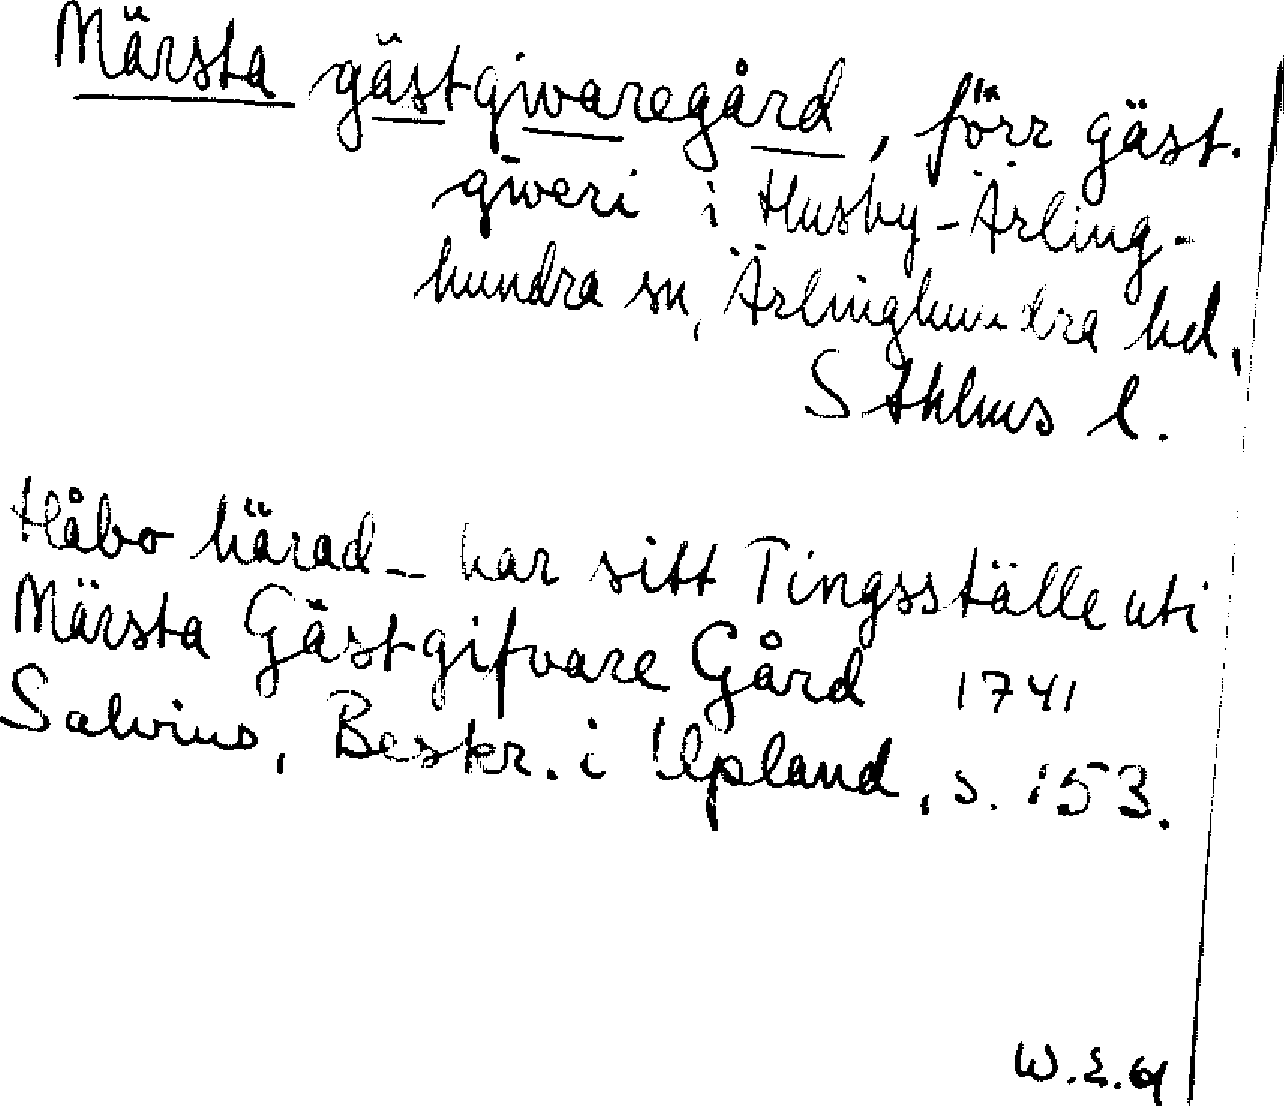 Märsta gästgivaregård, förr gäst-
giveri i Husby-Ärling-
hundra sn, Ärlinghundra hd,
Sthlms l.
Håbo härad — har sitt Tingsställe uti
Märsta Gästgifvare Gård 1741
Salvius, Beskr. i Upland, s. 153.
W.E. 61